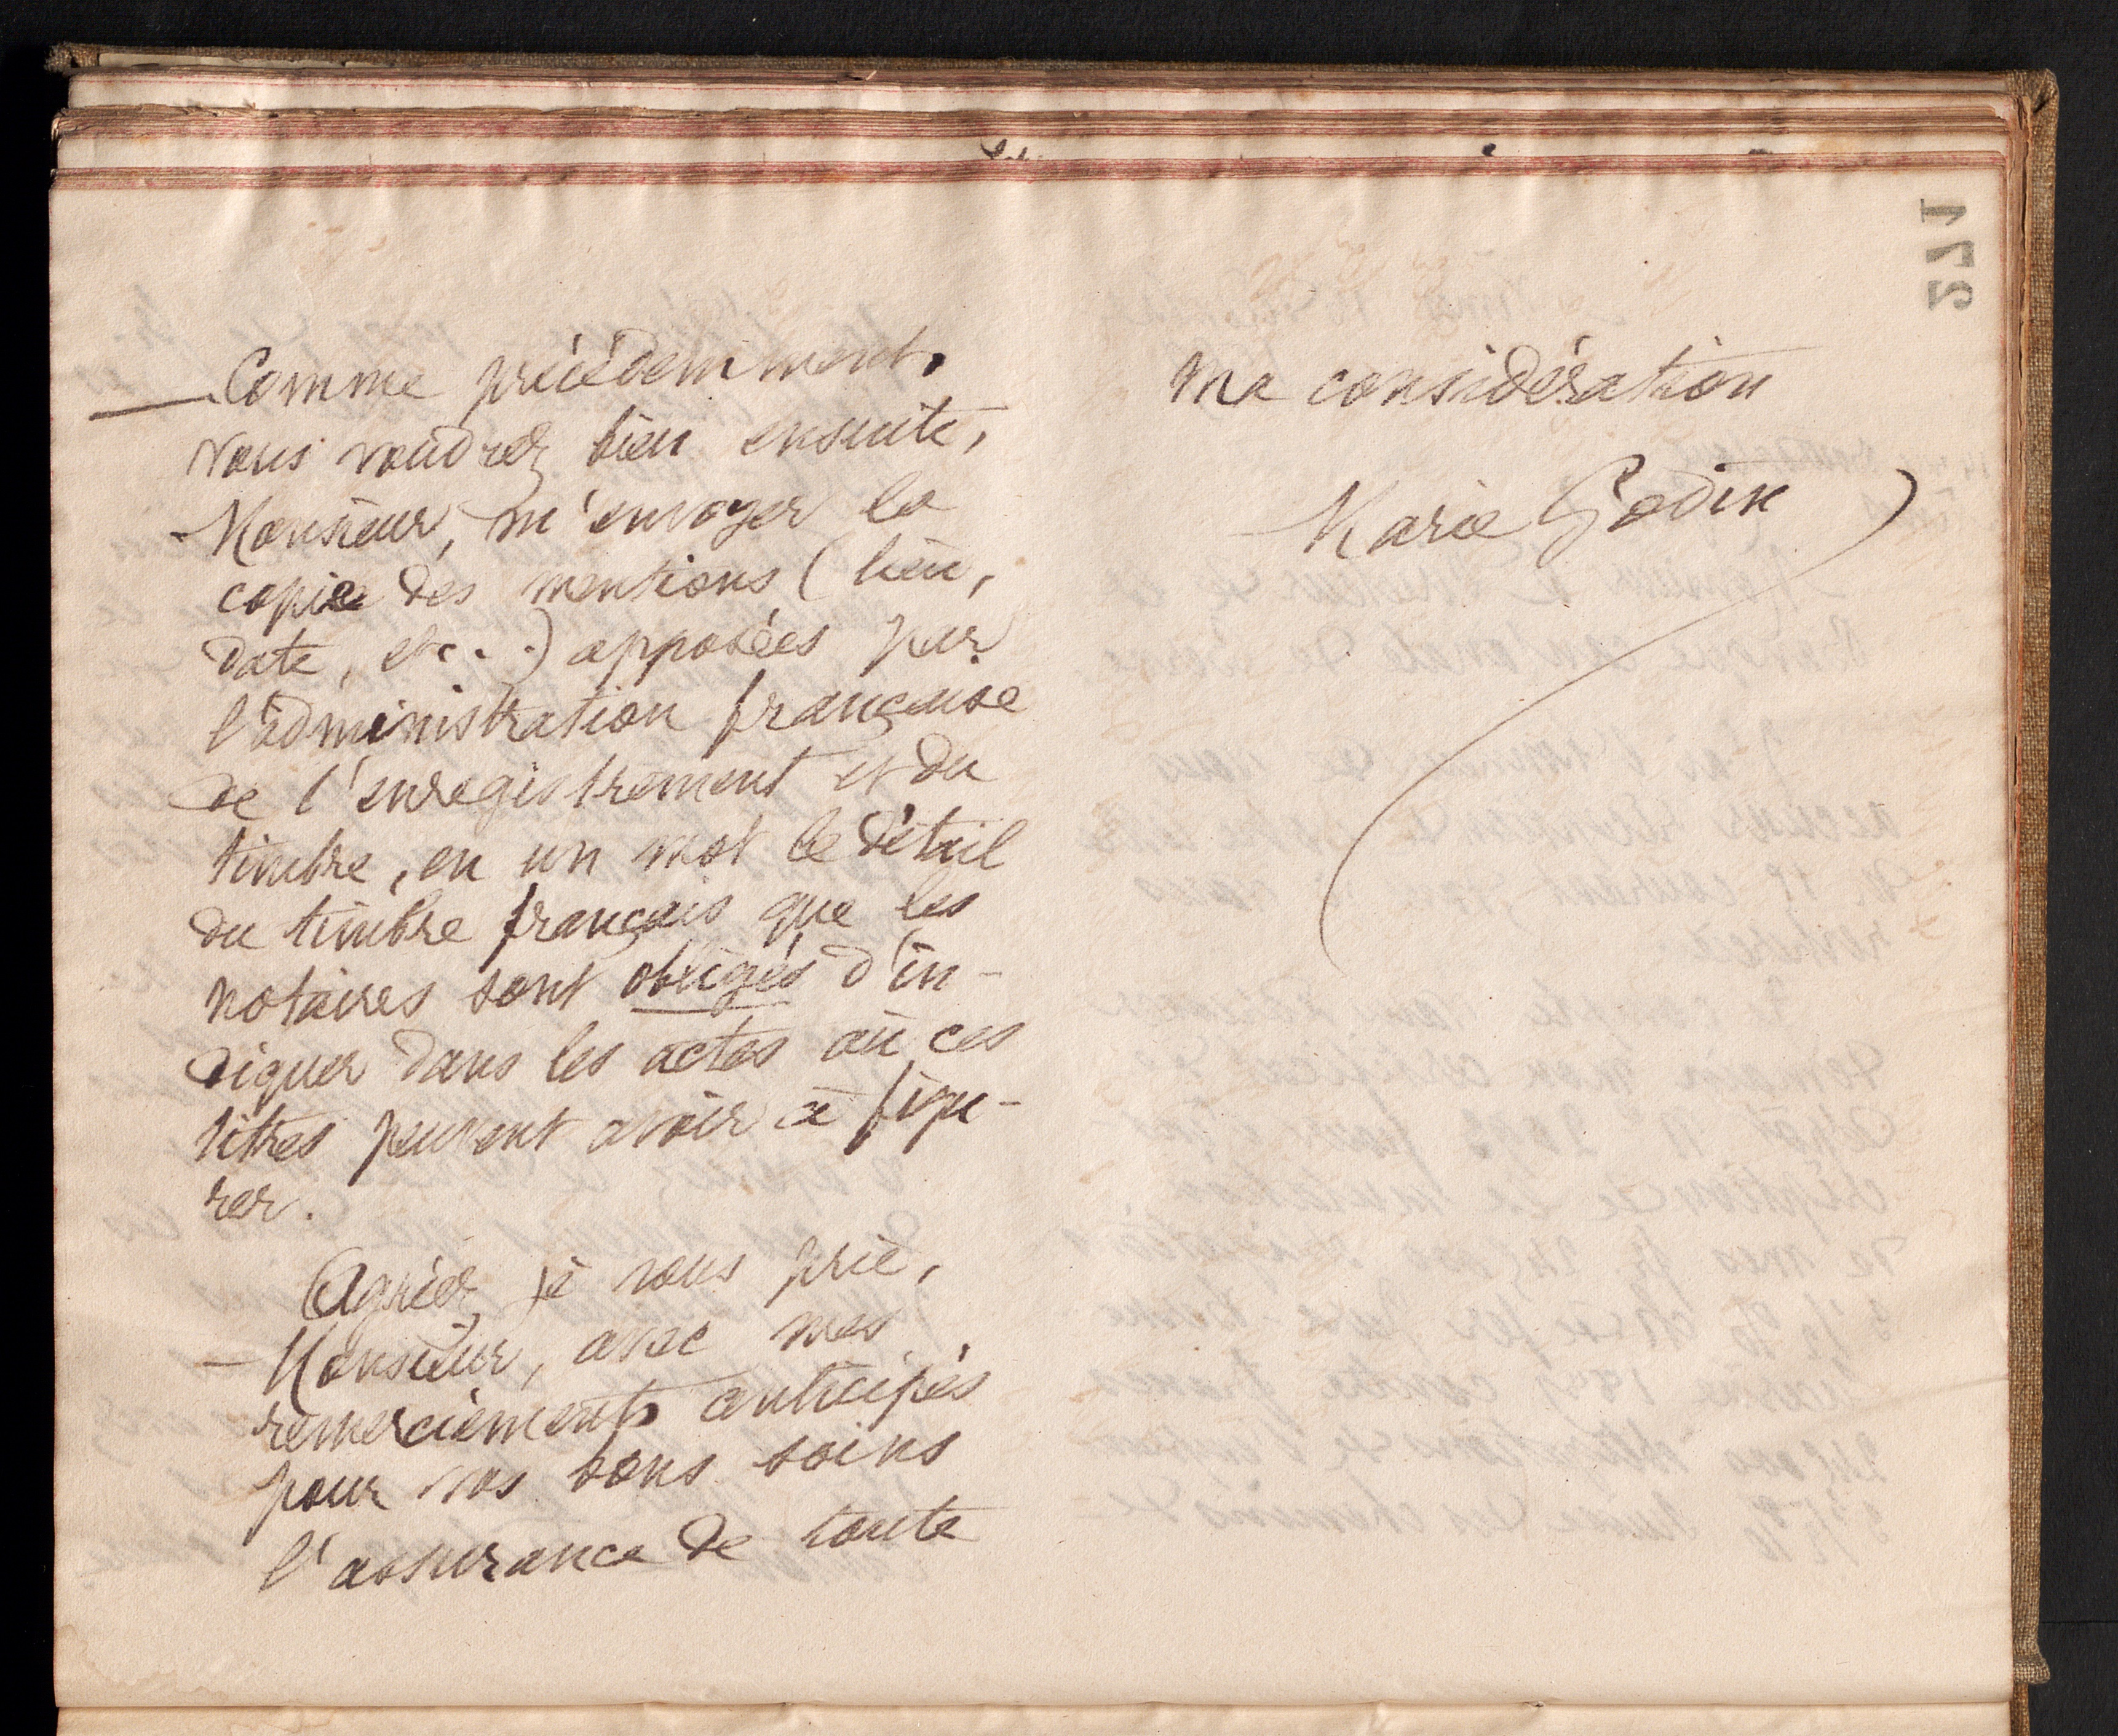 Comme précédemment
vous voudrez bien ensuite,
Monsieur, m'envoyer la
copie des mentions (lieu,
date, etc..) apposées par
l'administration française
de l'enregistrement et du
timbre, en un mot le détail
du timbre français que les
notaires sont obligés d'in-
diquer dans les actes où ces
titres peuvent avoir à figu-
rer.
Agréez, je vous prie,
Monsieur, avec mes
remerciements anticipés
pour vos bons soins
l'assurance de toute
ma considération
Marie Godin